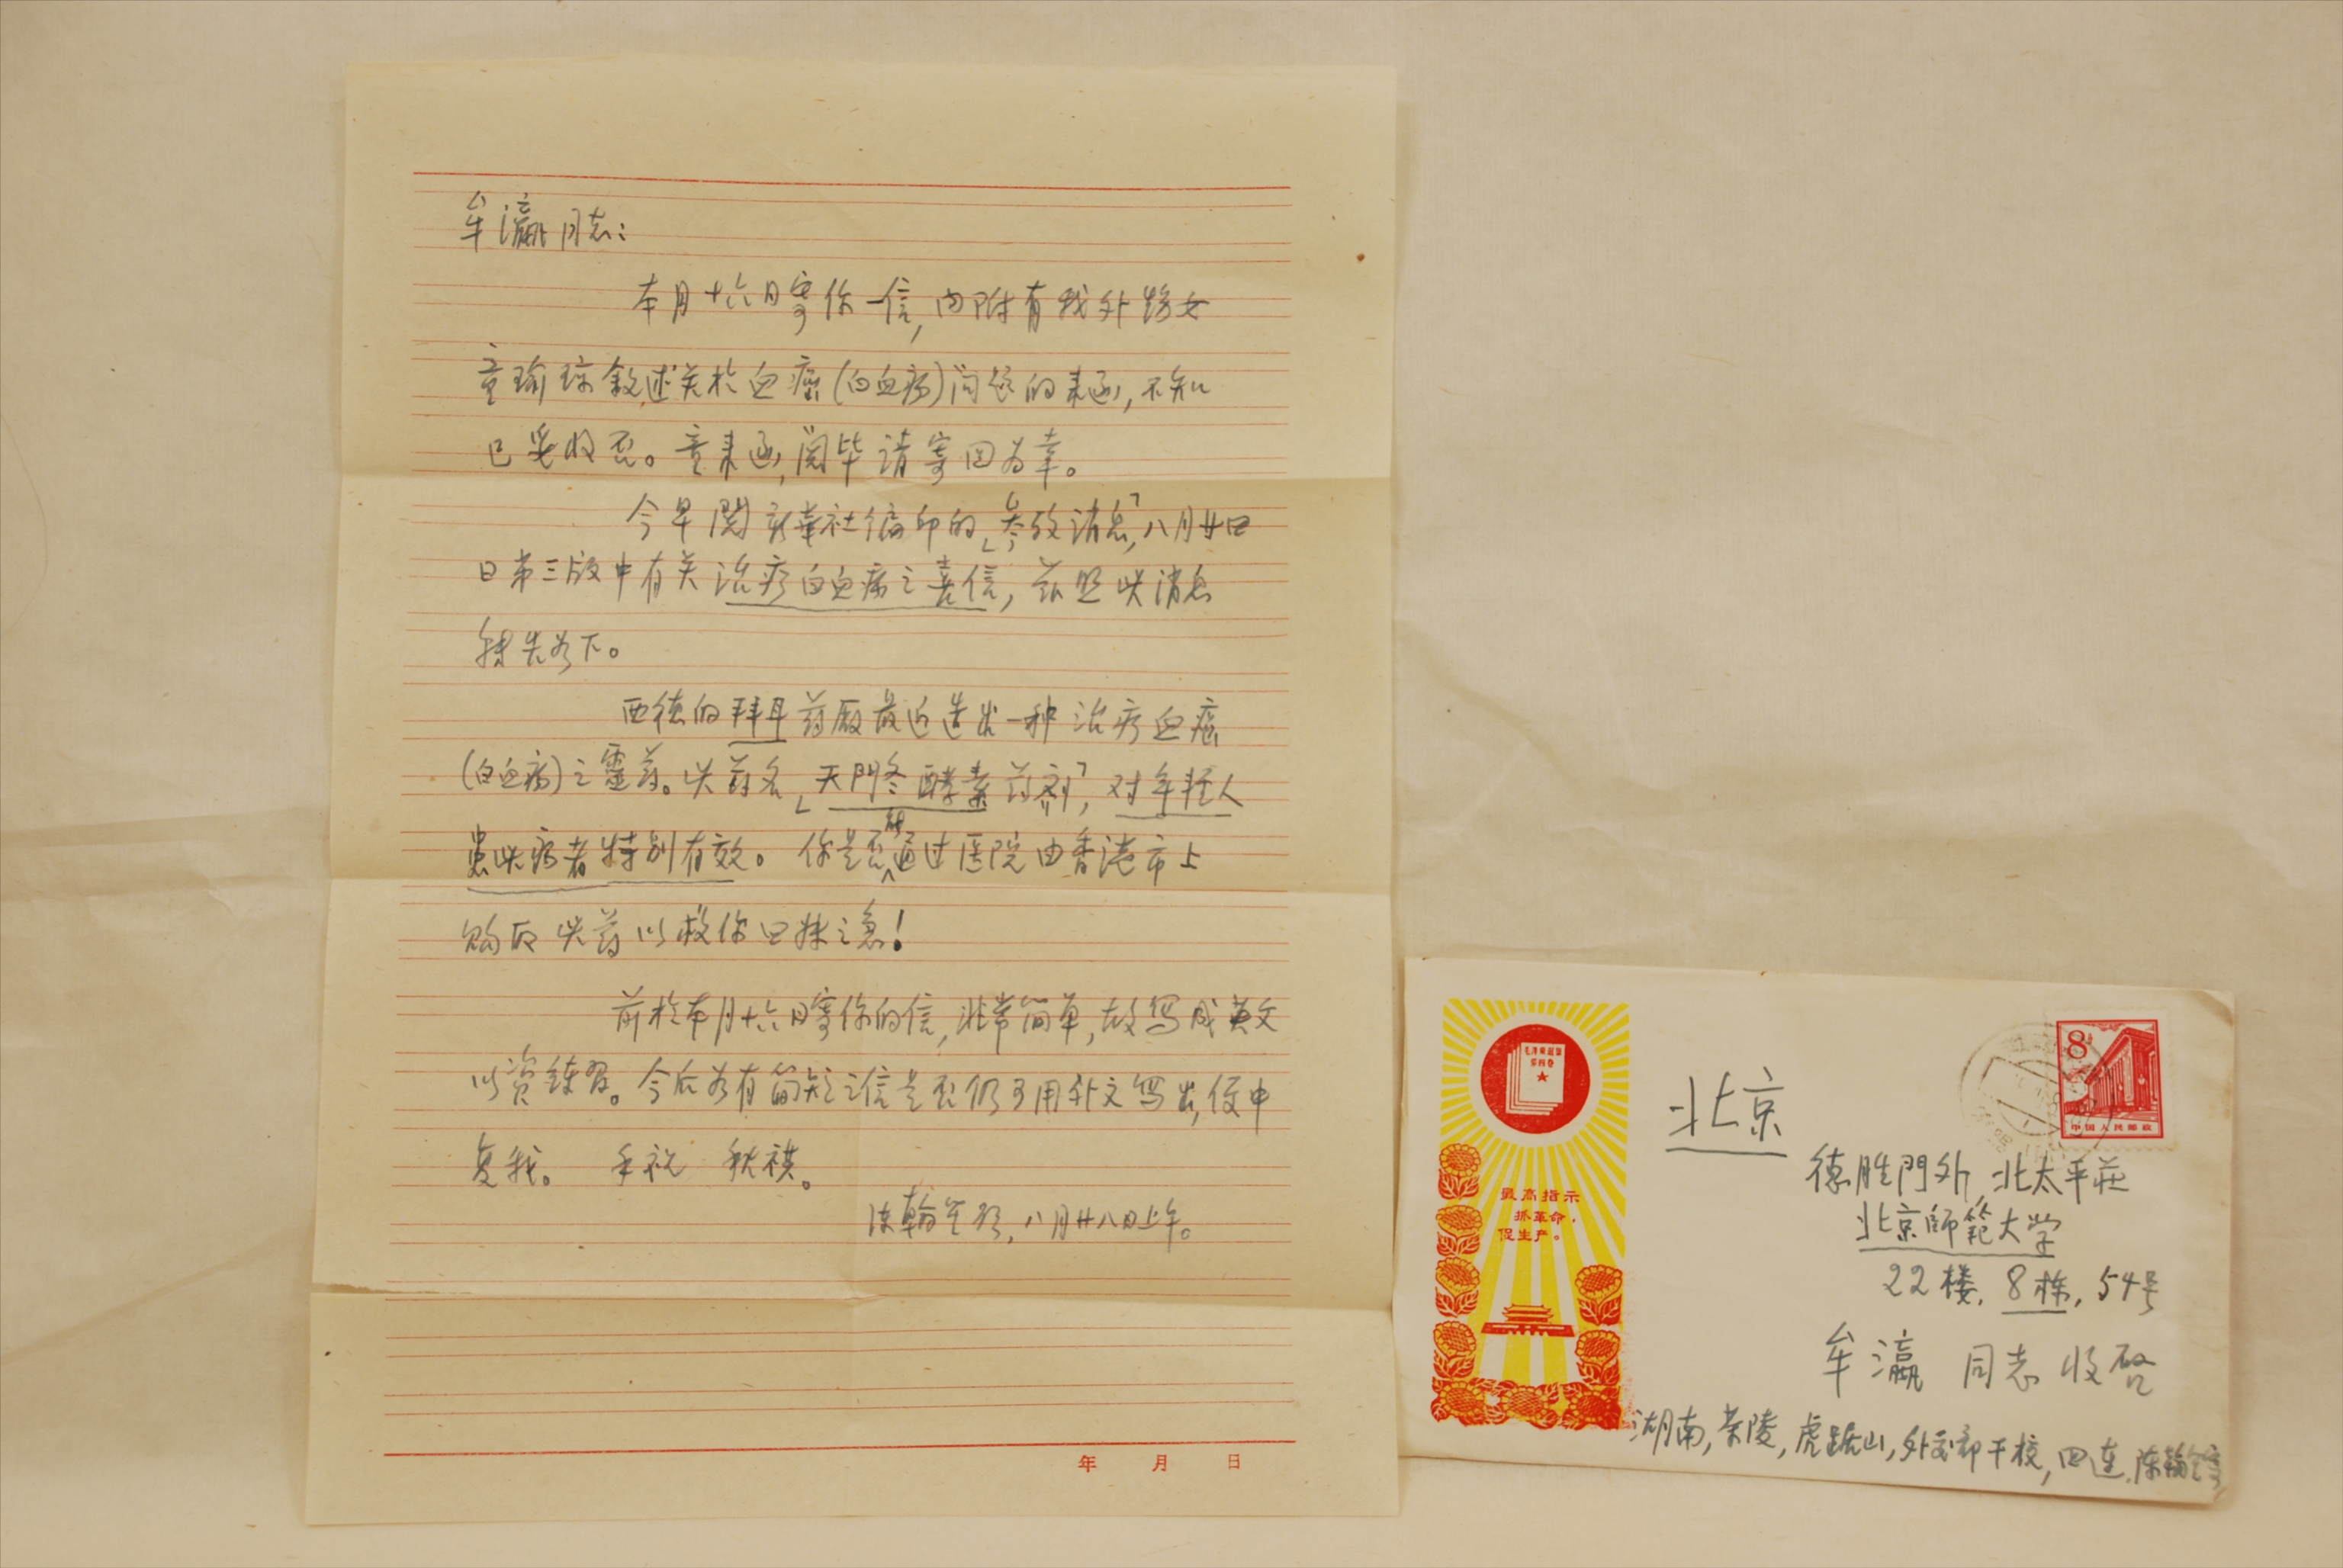 牟瀛同志：
本月十六日寄你一信，内附有我外甥女
童瑜琼敘述关於血癌（白血病）问题的来函，不知
已妥收否。童来函，阅毕请寄回为幸。
今早閱新華社编印的「参攷消息」，八月廿四
日第三版中有关治疗白血病之喜信，兹照此消息
如下。
西德的拜耳药厰最近造出一种治疗血癌
（白血病）之靈药。此药名「天門冬酵素药剂」，对年轻人
患此病者特别有效。你是否能通过医院由香港市上
购取此药以救你四妹之急！
前於本月十六日寄你的信，非常简单，故写成英文
以资練習。今后如有简短之信是否仍可用外文写出，便中
复我。 手祝 秋祺。
陈翰笙，八月廿八日上午。
年 月 日
毛泽东选集
第四卷
最高指示
抓革命，
促生产。
8分
中国人民邮政
北京
德胜門外，北太平莊
北京師範大学
22楼，8栋，54号
牟瀛 同志 收启
湖南，茶陵，虎踞山，外交部干校，四连，陈翰笙寄